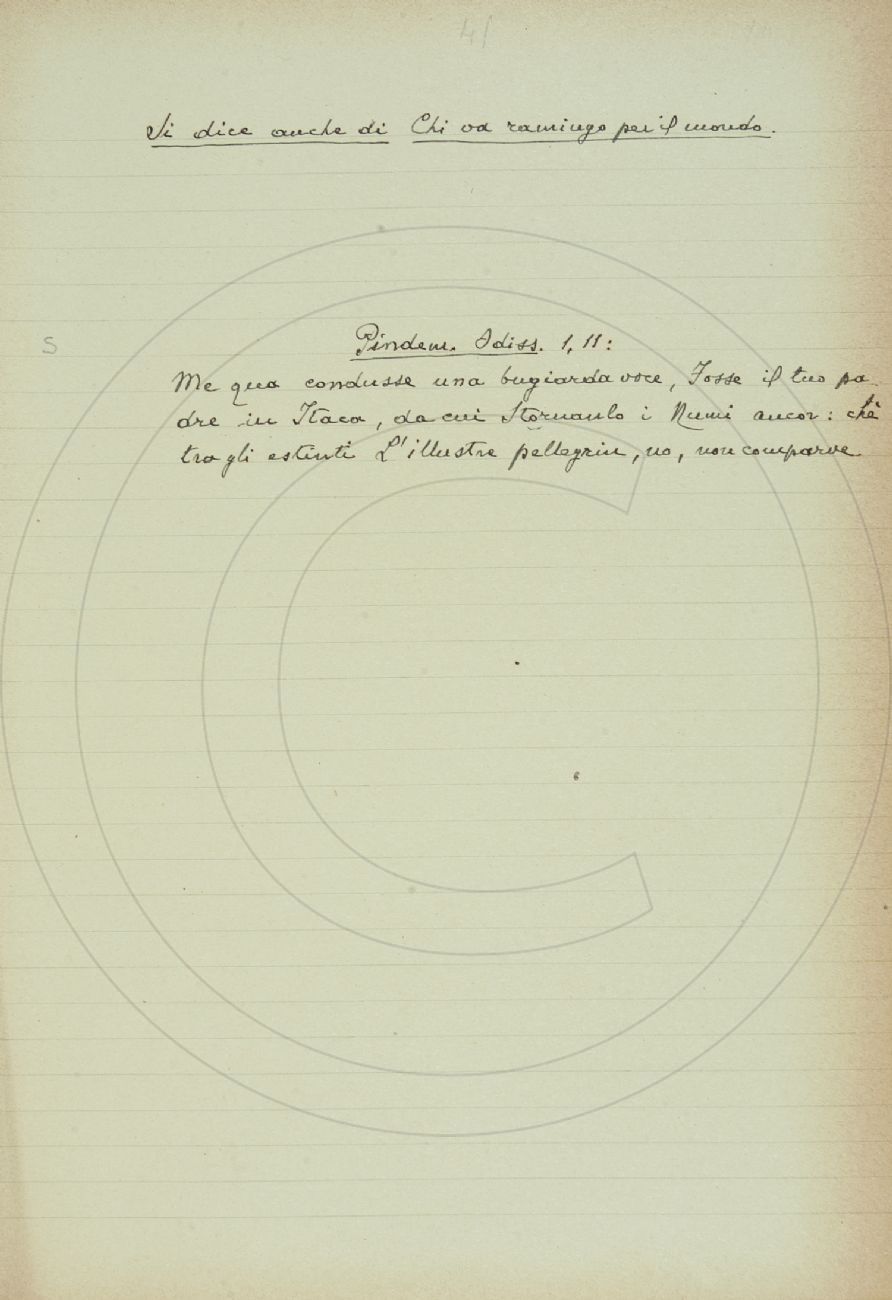 4/
Si dice anche di Chi va ramingo per il mondo.
S
Pindem. Odiss. 1, 11:
Me qua condusse una bugiarda voce, Fosse il tuo pa-
dre in Itaca, da cui Stornanlo i Numi ancor: chè
tra gli estinti L'illustre pellegrin, no, non comparve